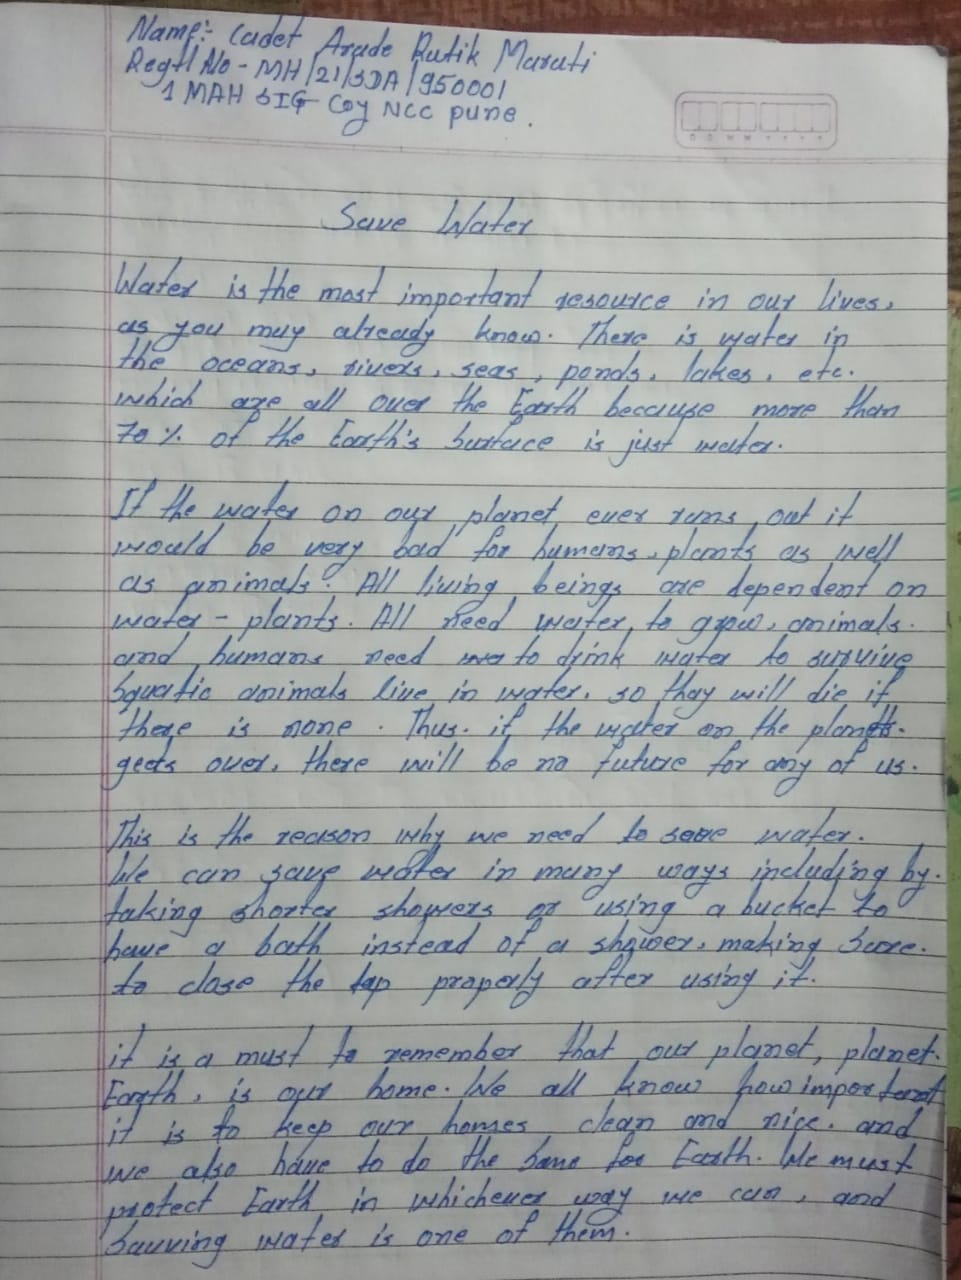 Name:- Cadet Arade Rutik Maruti
Regtl No - MH/21/SDA/950001
1 MAH SIG Coy NCC pune.
D D M M Y Y Y Y
Save Water
Water is the most important resource in our lives,
as you may already know. There is water in
the oceans, rivers, seas, ponds, lakes, etc.
which are all over the Earth because more than
70% of the Earth's Surface is just water.
If the water on our planet ever runs out it
would be very bad for humans, plants as well
as animals. All living beings are dependent on
water - plants. All need water to grow, animals.
and humans need to drink water to survive
Squatic animals live in water, so they will die if
there is none. Thus, if the water on the planet
gets over, there will be no future for any of us.
This is the reason why we need to save water.
We can save water in many ways including by.
taking shorter showers or using a bucket to
have a bath instead of a shower, making Sure.
to close the tap properly after using it.
it is a must to remember that our planet, planet.
Earth, is our home. We all know how important
it is to keep our homes clean and nice. and
we also have to do the Same for Earth. We must
protect Earth in whichever way we can, and
Sauving water is one of them.